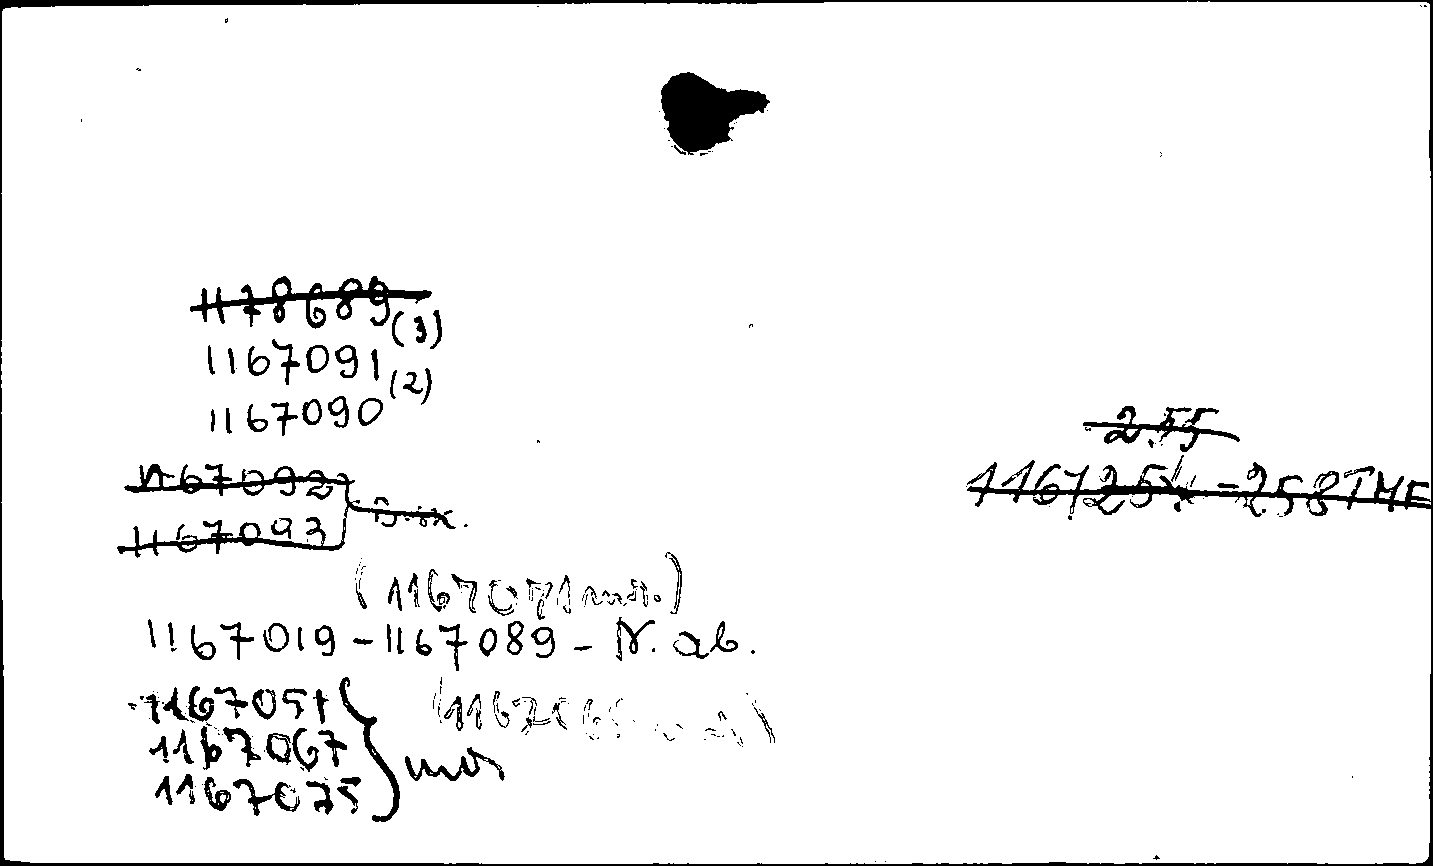 1178689
(3)
1167091
(2)
1167090
1167092
1167093
(1167071 mis.)
1167019-1167089-N. ab.
1167051
1167067
1167075
mis
2.55
-258TMF